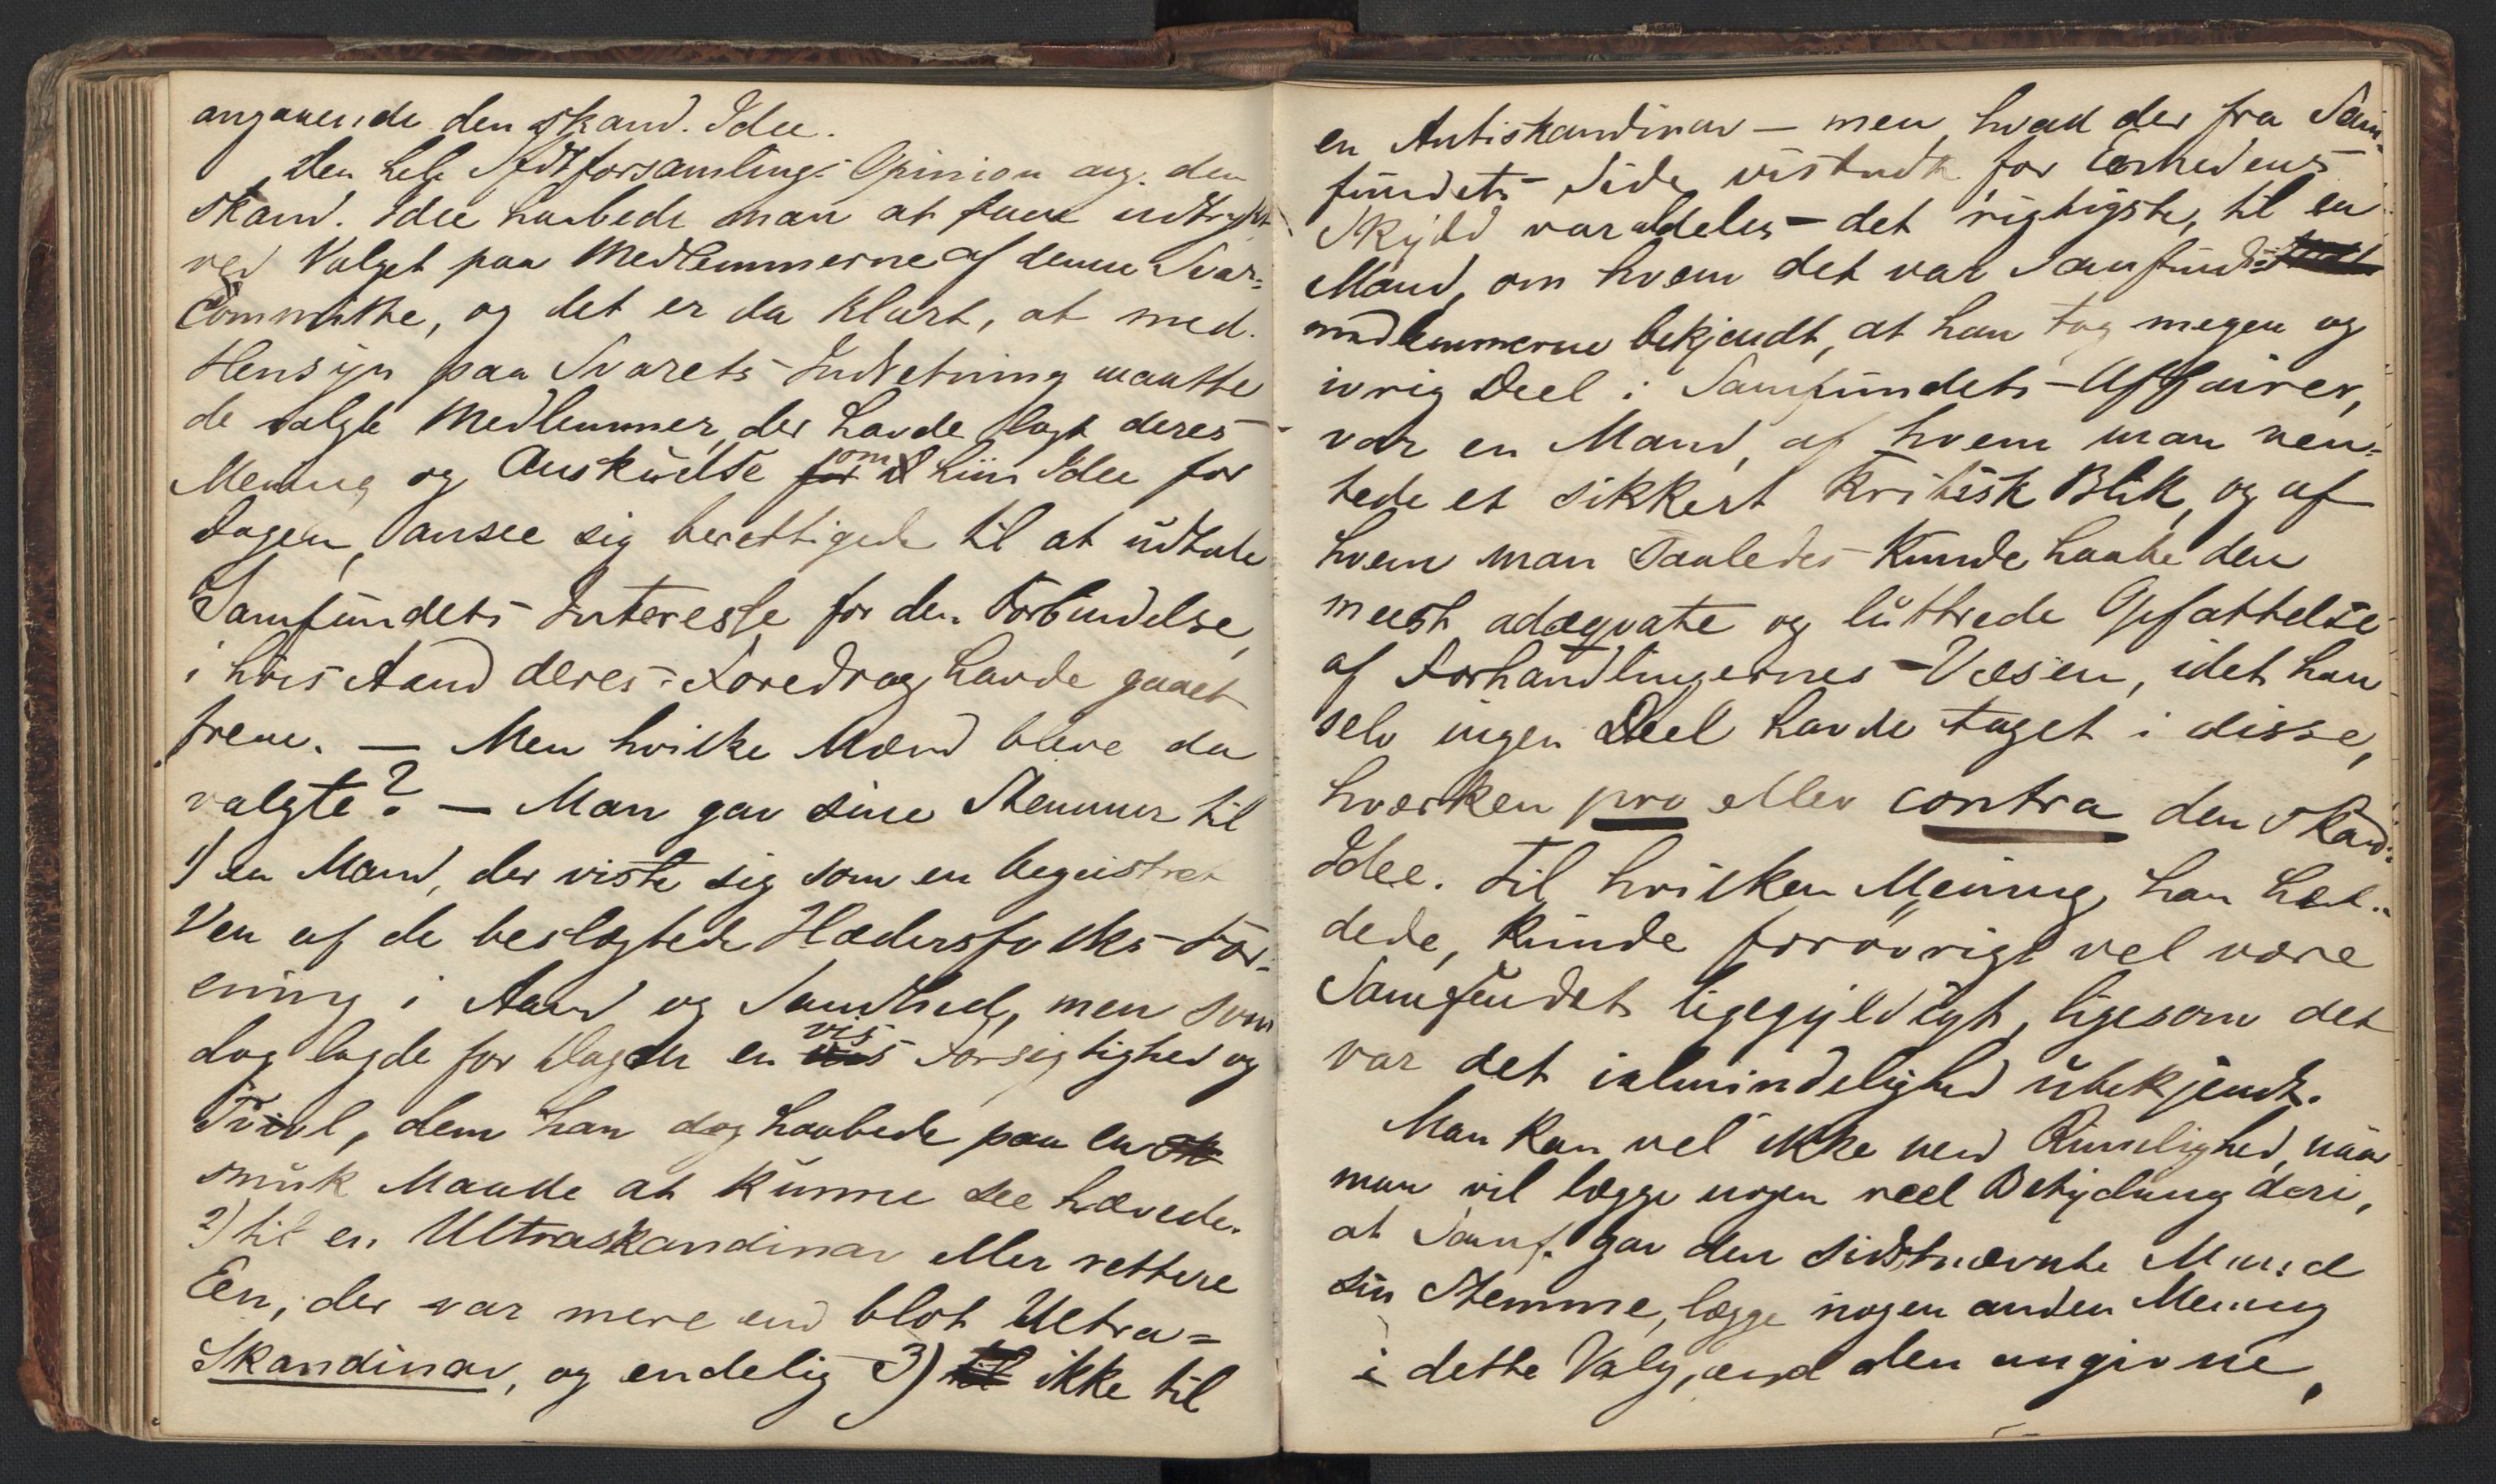 angaaende den skand. Idee.
Den hele Festforsamlings Opinion ang. den
skand. Idee haabede man at faae udtrykt
ved Valget paa Medlemmerne af denne Svar-
Committee, og det er da klart, at med
Hensyn paa Svarets Indretning maatte
de valgte Medlemmer, der havde lagt deres
Mening og Anskuelse for om hiin Idee for
Dagen, ansee sig berettigede til at udtale
Samfundets Interesse for den Forbindelse,
i hvis Aand deres Foredrag havde gaaet
frem. — Men hvilke Mænd bleve da
valgte? — Man gav sine Stemmer til
1) en Mand, der viste sig som en begeistret
Ven af de beslægtede Hædersfolks For-
ening i Aand og Sandhed, men som
dog lagde for Dagen en vis Forsigtighed og
Tvivl, dem han dog haabede paa en
smuk Maade at kunne see hævede.
2) til en Ultraskandinav eller rettere
Een, der var mere end blot Ultra=
Skandinav, og endelig 3) til ikke til
en Antiskandinav — men, hvad der fra Sam-
fundets Side vistnok for Enhedens
Skyld var aldeles det rigtigste, til en
Mand, om hvem det var Samfunds
medlemmerne bekjendt, at han tog megen og
ivrig Deel i Samfundets Affairer,
var en Mand, af hvem man ven-
tede et sikkert kritisk Blik, og af
hvem man saaledes kunde haabe den
meest adæqvate og luttrede Opfattelse
af Forhandlingernes Væsen, idet han
selv ingen Deel havde taget i disse,
hverken pro eller contra den skand.
Idee. Til hvilken Mening han hæl-
dede, kunde forøvrigt vel være
Samfundet ligegyldigt, ligesom det
var det i almindelighed ubekjendt.
Man kan vel ikke ved Rimelighed, naar
man vil lægge nogen reel Betydning deri,
at Samf. gav den sidstnævnte Mand
sin Stemme, lægge nogen anden Mening
i dette Valg, end den angivne,